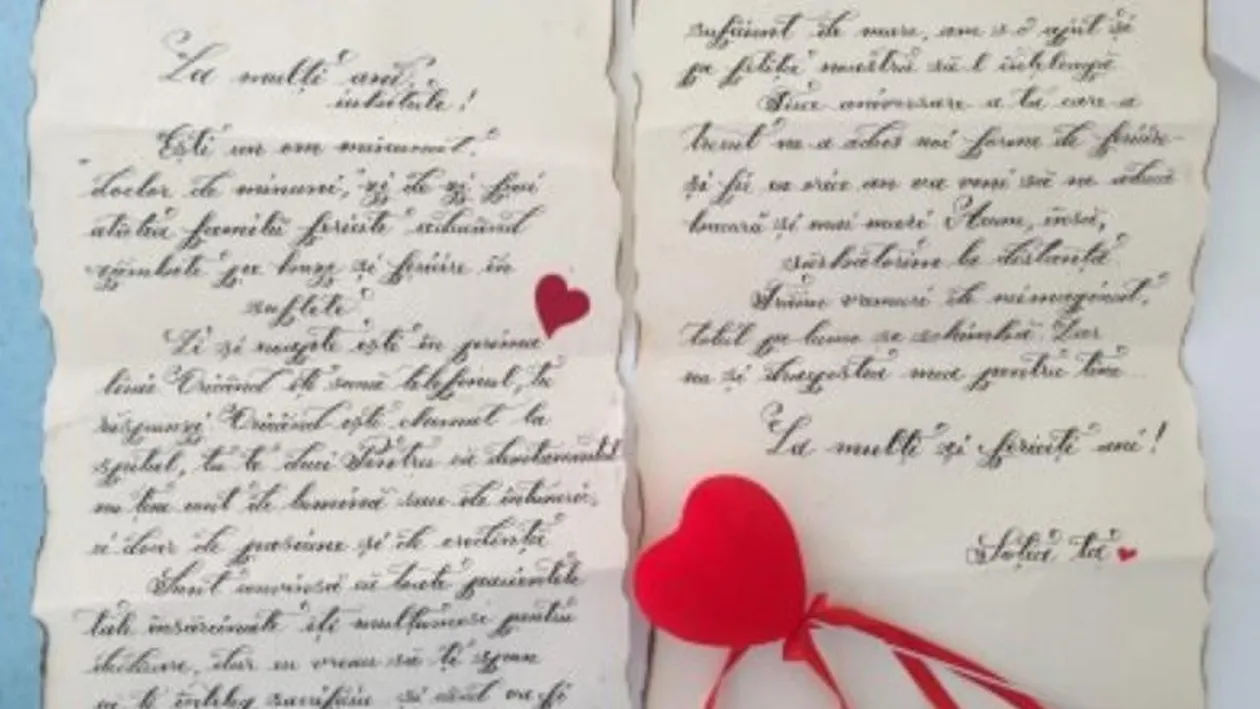 La mulți ani,
iubitule!
Ești un om minunat,
doctor de minuni, zi de zi faci
atâtea familii fericite aducând
zâmbete pe buze și fericire în
suflete
Zi și noapte ești în prima
linie Oricând îți sună telefonul, tu
răspunzi Oricând ești chemat la
spital, tu te duci Pentru că devotamentul
nu ține cont de lumină sau de întuneric,
ci doar de pasiune și de credință
Sunt convinsă că toate pacientele
tale însărcinate îți mulțumesc pentru
dedicare, dar eu vreau să îți spun
că te înțeleg sacrificiu și când va fi
suficient de mare, am s-o ajut și
pe fetița noastră să-l înțeleagă
Fiece aniversare a ta care a
trecut ne-a adus noi forme de fericire
și fie ca orice an va veni să ne aducă
bucurii și mai mari Acum, însă,
sărbătorim la distanță
Trăim vremuri de neimaginat,
totul pe lume se schimbă Dar
nu și dragostea mea pentru tine
La mulți și fericiți ani!
Soția ta